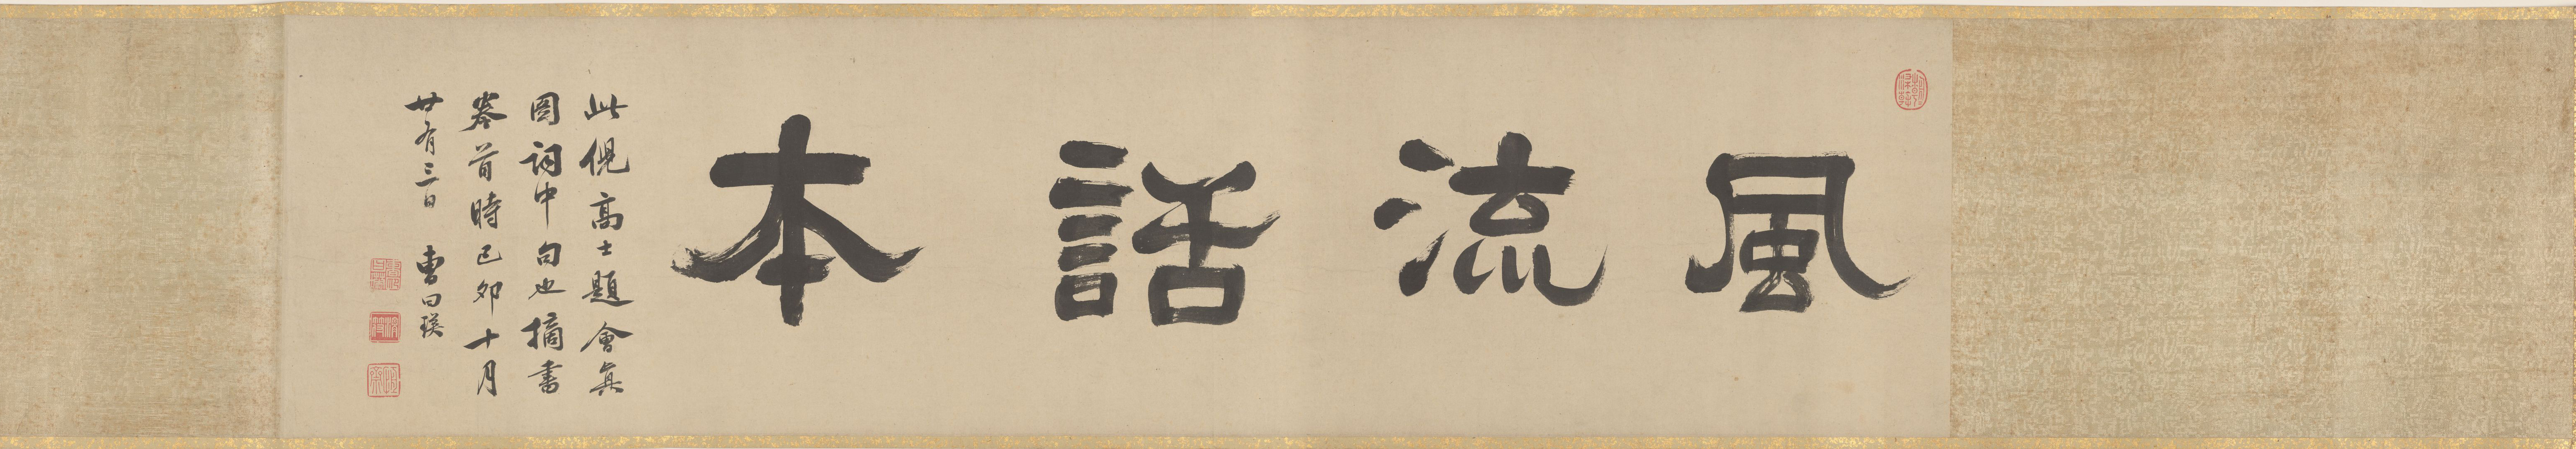 風流話本
此倪高士題會真
圖詞中句也摘書
卷首時己卯十月
廿有三日 曹曰瑛